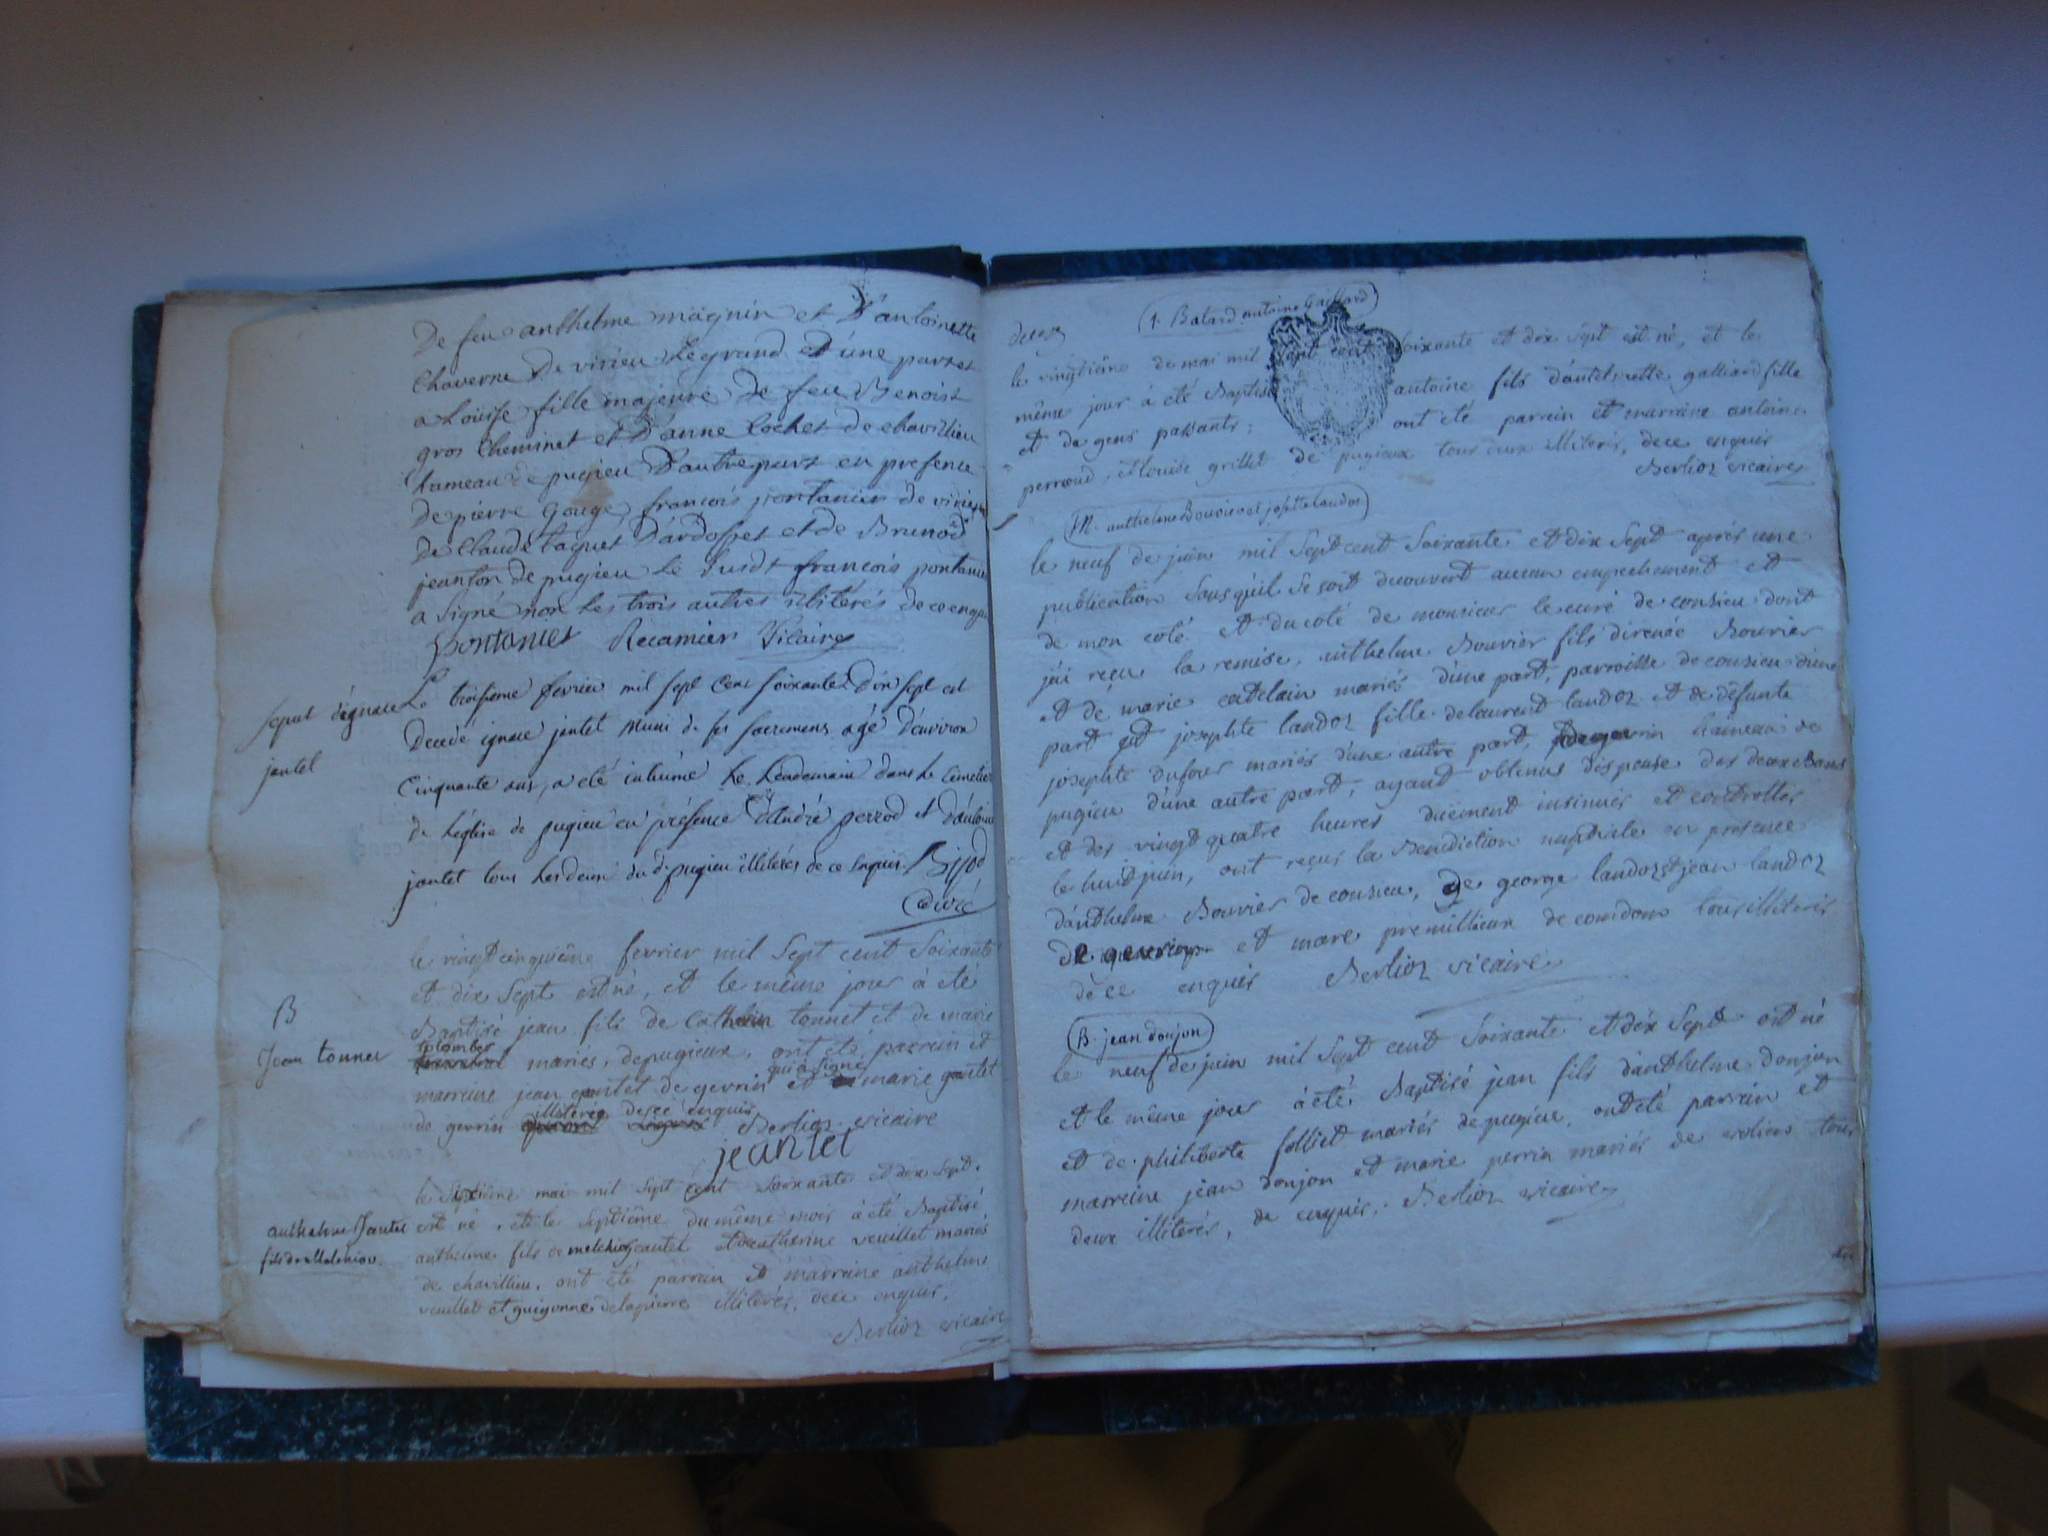 De feu anthelme magnin et D'antoinette
Chaverne De virieu Legrand D'une part et
a Louise fille majeure De feu Benoist
gros Cheminet et D'anne Rochet de chavillieu
hameau de pugieu D'autre part en presence
de pierre Gouge, francois pontanier de virieu
De Claude taquet D'ardosset et de Brunod
jeanton de pugieu Le susdt francois pontanier
a signé non Les trois autres illiterés de ce enquis
pontanier Recamier Vicaire
sepult d'ignace
jantet
Le troisieme fevrier mil sept cent soixante Dix sept est
Decedé ignace jantet muni de ses sacremens agé D'environ
Cinquante ans, a eté inhumé Le Lendemain dans le Cimetiere
de L'église de pugieu en présence D'André perrod et d'antoine
jantet tous Les deux du d. pugieu illitérés de ce enquis Bijod
Curé
B
Jean tonnet
le vingt cinquième fevrier mil Sept cent Soixante
et dix Sept est né, et le même jour à été
Baptisé jean fils de Catherin tonnet et de marie
plombet
mariés, de pugieux, ont été parrein et
qui a signé
marreine jean jeantet de gevrin et marie jantet
illiterée de ce enquis
de gevrin Berlioz vicaire
jeantet
anthelme Jantet
fils de Melchior
le Sixième mai mil Sept cent Soixante et dix Sept
est né, et le Septième du même mois à été Baptisé
anthelme fils de melchior jeantet et de catherine veuillet mariés
de chavillieu. ont été parrein et marreine anthelme
veuillet et guigonne delapierre illiterés, de ce enquis.
Berlioz vicaire
decez
1. Batard antoine Gaillard
le vingtième de mai mil sept cent Soixante et dix Sept est né, et le
même jour à été Baptisé antoine fils d'antoinette galliard fille
et de gens passants: ont été parrein et marraine antoine
perroud, et louise grillet de pugieux tous deux illiterés, de ce enquis
Berlioz vicaire
M. anthelme Bouvier et josephte landoz
le neuf de juin mil Sept cent Soixante et dix Sept après une
publication Sans qu'il se soit decouvert aucun empechement et
de mon coté et du coté de monsieur le curé de conzieu dont
j'ai reçu la remise, anthelme Bouvier fils d'irenée Bouvier
et de marie catelain mariés d'une part, parroisse de conzieu d'une
part et josephte landoz fille de laurent landoz et de défunte
josephte dufour mariés d'une autre part, de gevrin hameau de
pugieu d'une autre part, ayant obtenus dispense des deux Bans
et des vingt quatre heures duëment insinués et controllés
le huit juin, ont reçus la Benediction nuptiale en presence
d'anthelme Bouvier de conzieu, de george landoz et jean landoz
de gevrin et marc premillieux de condom tous illiterés
de ce enquis Berlioz vicaire
B. jean donjon
le neuf de juin mil Sept cent Soixante et dix Sept est né
et le même jour à été Baptisé jean fils d'anthelme donjon
et de philiberte folliet mariés de pugieu, ont été parrein et
marreine jean donjon et marie perrin mariés de tous
deux illiterés, de enquis. Berlioz vicaire